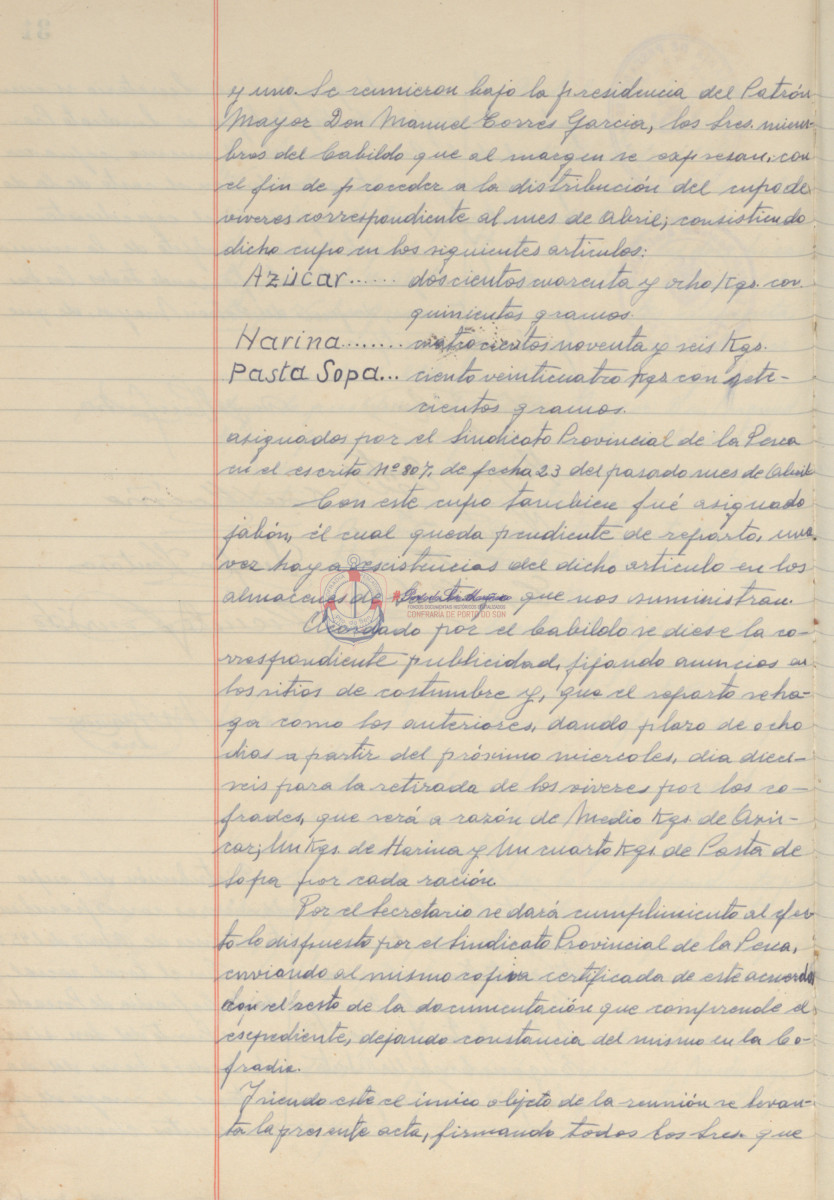 31
y uno. Se reunieron bajo la presidencia del Patrón
Mayor Don Manuel Torres Garcia, los Sres. miem-
bros del Cabildo que al margen se expresan, con
el fin de proceder a la distribución del cupo de
viveres correspondiente al mes de Abril; consistiendo
dicho cupo en los siguientes articulos:
Azúcar...... doscientos cuarenta y ocho Kgs. con
quinientos gramos.
Harina........ cuatrocientos noventa y seis Kgs.
Pasta Sopa... ciento veinticuatro Kgs con sete-
cientos gramos.
asignados por el Sindicato Provincial de la Pesca
en el escrito nº 807, de fecha 23 del pasado mes de Abril
Con este cupo tambien fué asignado
jabón, él cual queda pendiente de reparto, una
vez haya escistencias del dicho articulo en los
almacenes de que nos suministran.
Acordado por el Cabildo se diese la co-
rrespondiente publicidad, fijando anuncios en
los sitios de costumbre y, que el reparto se ha-
ga como los anteriores, dando plazo de ocho
dias a partir del próximo miercoles, dia dieci-
seis para la retirada de los viveres por los co-
frades, que será a razón de Medio Kgs. de Azú-
car; Un Kgs. de Harina y Un cuarto Kgs. de Pasta de
Sopa por cada ración.
Por el Secretario se dará cumplimiento al efec-
to lo dispuesto por el Sindicato Provincial de la Pesca,
enviando al mismo copia certificada de este acuerdo
con el resto de la documentación que comprende el
escpediente, dejando constancia del mismo en la Co-
fradia.
Y siendo este el único objeto de la reunión se levan-
ta la presente acta, firmando todos los Sres. que
FONDOS DOCUMENTAIS HISTÓRICOS DIXITALIZADOS
CONFRARÍA DE PORTO DO SON